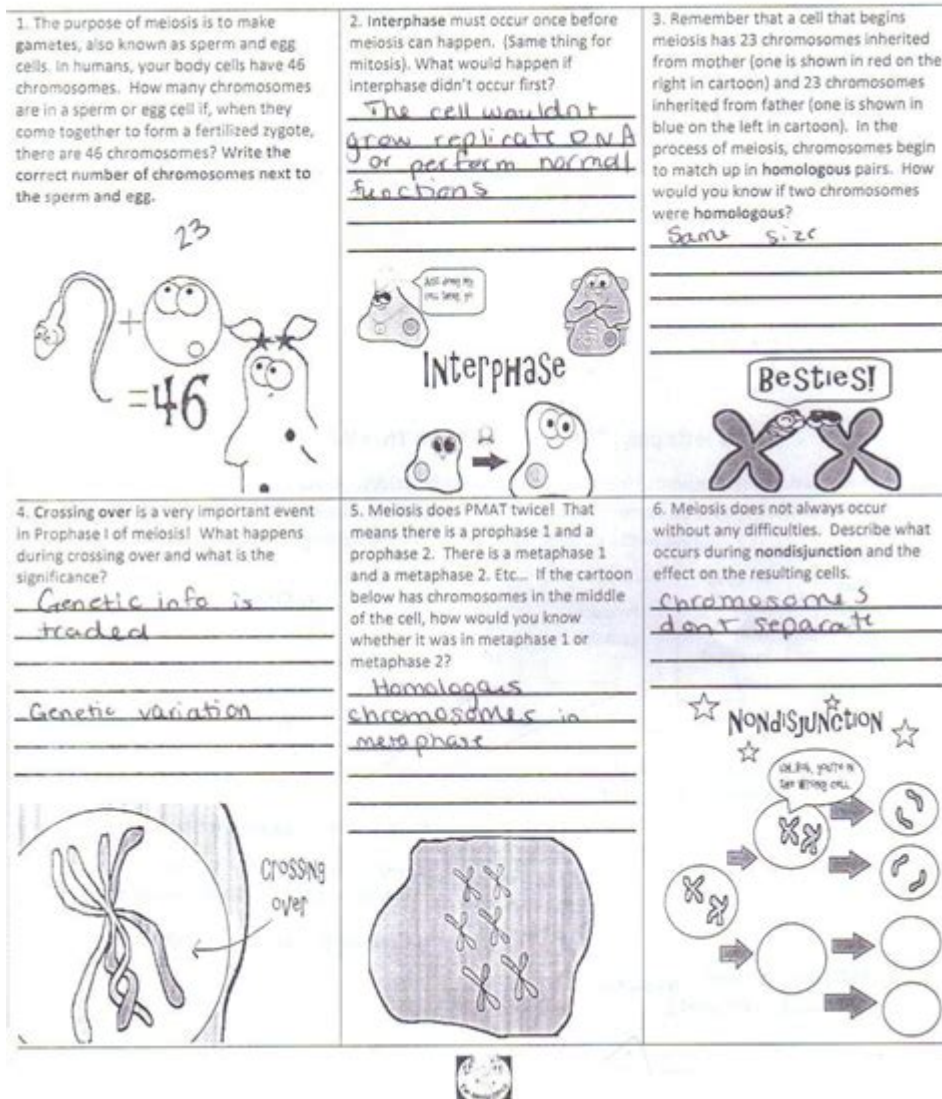 1. The purpose of meiosis is to make
gametes, also known as sperm and egg
cells. In humans, your body cells have 46
chromosomes. How many chromosomes
are in a sperm or egg cell if, when they
come together to form a fertilized zygote,
there are 46 chromosomes? Write the
correct number of chromosomes next to
the sperm and egg.
23
+
=46
2. Interphase must occur once before
meiosis can happen. (Same thing for
mitosis). What would happen if
interphase didn't occur first?
The cell wouldnt
grow replicate DNA
or perform normal
functions
INterpHase
3. Remember that a cell that begins
meiosis has 23 chromosomes inherited
from mother (one is shown in red on the
right in cartoon) and 23 chromosomes
inherited from father (one is shown in
blue on the left in cartoon). In the
process of meiosis, chromosomes begin
to match up in homologous pairs. How
would you know if two chromosomes
were homologous?
Same size
BeSties!
4. Crossing over is a very important event
in Prophase I of meiosis! What happens
during crossing over and what is the
significance?
Genetic info is
traded
Genetic variation
Crossing
over
5. Meiosis does PMAT twice! That
means there is a prophase 1 and a
prophase 2. There is a metaphase 1
and a metaphase 2. Etc... If the cartoon
below has chromosomes in the middle
of the cell, how would you know
whether it was in metaphase 1 or
metaphase 2?
Homologous
chromosomes in
metaphase
6. Meiosis does not always occur
without any difficulties. Describe what
occurs during nondisjunction and the
effect on the resulting cells.
Chromosomes
dont separate
NoNdisjuNction
you're in
the wrong cell